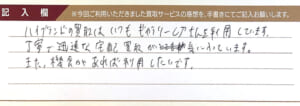 記入欄 ※今回ご利用いただきました買取サービスの感想を、手書きにてご記入お願いします。
ハイブランドの買取は、いつもギャラリーレアさんを利用しています。
丁寧で迅速な宅配買取が気に入っています。
また、機会があれば利用したいです。